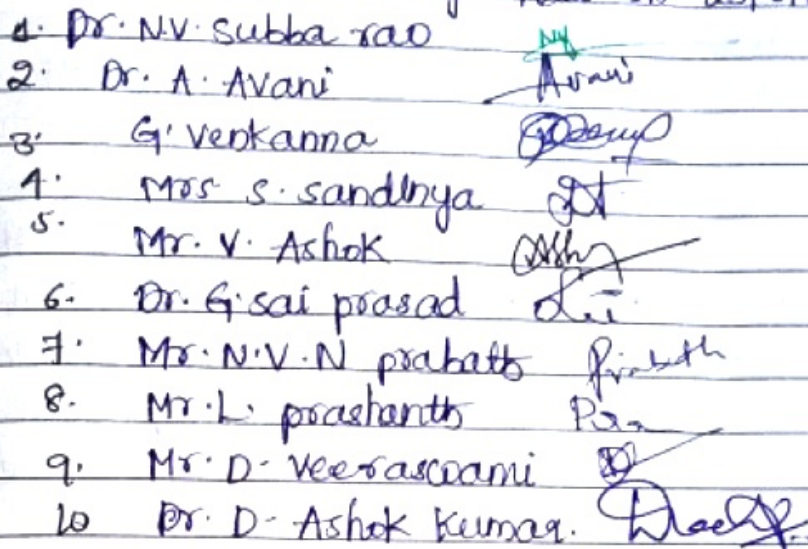 1. Dr. N.V. Subba rao NV
2. Dr. A. Avani Avani
3. G. Venkanna
4. Mrs S. Sandhya
5. Mr. V. Ashok
6. Dr. G. sai prasad
7. Mr. N.V.N prabath Prabath
8. Mr. L. prashanth
9. Mr. D. Veeraswami
10 Dr. D. Ashok Kumar.